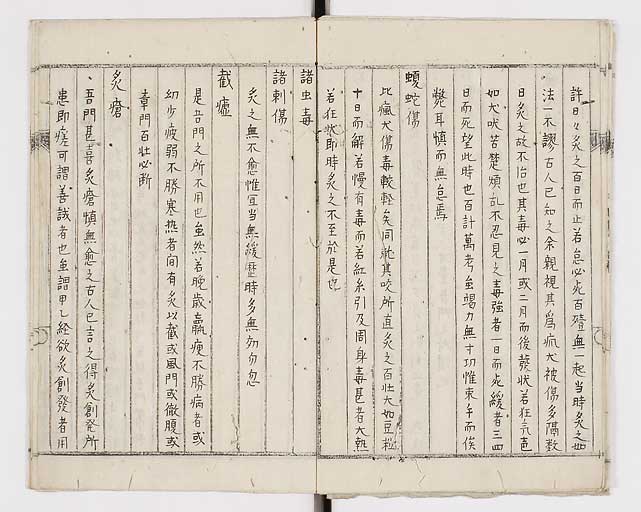 許日々灸之百日而止若怠必死百殪無一起当時灸之如
法一不謬古人已知之余親視其為瘋犬被傷多隔数
日灸之故不治也其毒必一月或二月而後發状若狂気芭
如犬吠苦楚煩乱不忍見之毒強者一日而死緩者三四
日而死望此時也百計萬考虽竭力無寸功惟束手而俟
斃耳慎而無怠焉
蝮蛇傷
比瘋犬傷毒較軽矣同就其咬所直灸之百壮大如豆粒
十日而解若慢有毒而若紅糸引及周身毒甚者大熱
若狂状即時灸之不至於是也
諸虫毒
諸刺傷
灸之無不愈惟宜当無緩歴時多無効勿忽
截瘧
是吾門之所不用也虽然若晚歳羸痩不勝病者或
幼少疲弱不勝寒热者间有灸以截或風門或徹腹或
章門百壮必断
灸瘡
吾門甚喜灸瘡慎無愈之古人已言之得灸創発所
患即瘥可謂善誠者也虽謂甲乙経欲灸創發者用